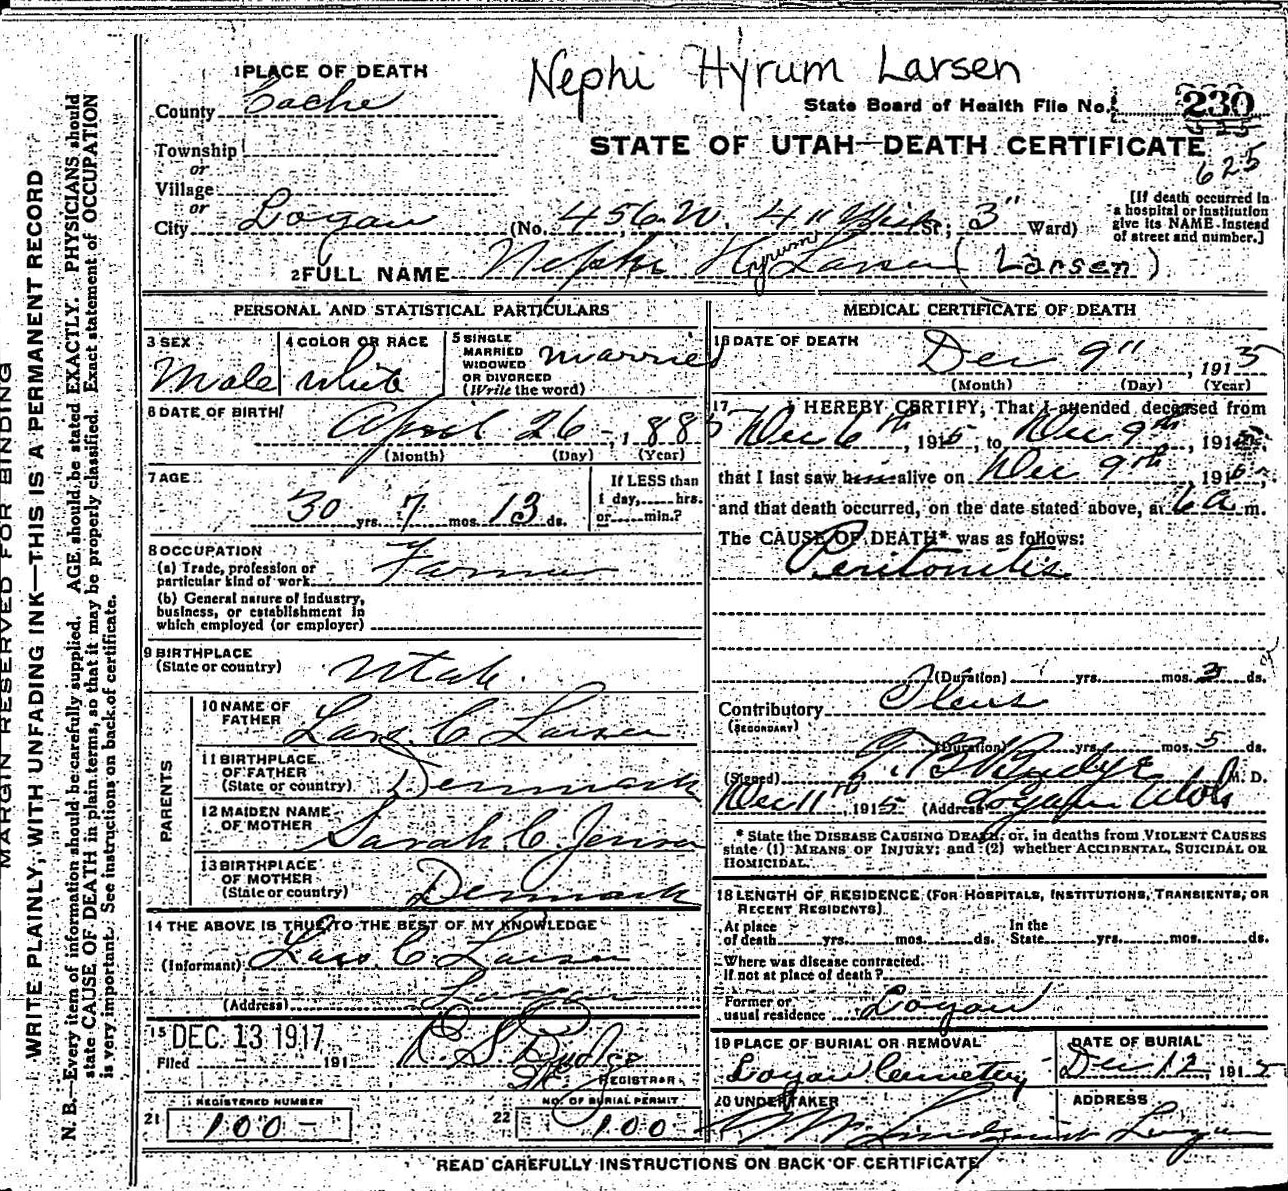 Nephi Hyrum Larsen
1 PLACE OF DEATH
County Cache
State Board of Health File No. 230
Township
or
STATE OF UTAH—DEATH CERTIFICATE
625
Village
or
City Logan (No. 456 W. 4" St; 3" Ward)
[If death occurred in a hospital or institution give its NAME instead of street and number.]
2 FULL NAME Nephi Hyrum Larsen (Larsen)
PERSONAL AND STATISTICAL PARTICULARS
3 SEX
Male
4 COLOR OR RACE
White
5 SINGLE
MARRIED
WIDOWED
OR DIVORCED
(Write the word)
Married
6 DATE OF BIRTH
April 26, 1885
(Month) (Day) (Year)
7 AGE
30 yrs. 7 mos. 13 ds.
If LESS than
1 day, hrs.
or min.?
8 OCCUPATION
(a) Trade, profession or
particular kind of work Farmer
(b) General nature of industry,
business, or establishment in
which employed (or employer)
9 BIRTHPLACE
(State or country) Utah.
PARENTS
10 NAME OF
FATHER Lars C Larsen
11 BIRTHPLACE
OF FATHER
(State or country) Denmark
12 MAIDEN NAME
OF MOTHER Sarah C. Jensen
13 BIRTHPLACE
OF MOTHER
(State or country) Denmark
14 THE ABOVE IS TRUE TO THE BEST OF MY KNOWLEDGE
(Informant) Lars C Larsen
(Address) Logan
15
DEC. 13 1917
Filed 191
REGISTRAR
REGISTERED NUMBER
21 100 -
NO. OF BURIAL PERMIT
22 100
MEDICAL CERTIFICATE OF DEATH
16 DATE OF DEATH
Dec 9", 1915
(Month) (Day) (Year)
17 I HEREBY CERTIFY, That I attended deceased from
Dec 6th, 1915, to Dec 9th, 1915
that I last saw him alive on Dec 9th 1915,
and that death occurred, on the date stated above, at 6 a m.
The CAUSE OF DEATH* was as follows:
Peritonitis
(Duration) yrs. mos. 3 ds.
Contributory Ileus
(SECONDARY)
(Duration) yrs. mos. 5 ds.
(Signed) M. D.
Dec 11th, 1915 (Address) Logan Utah
* State the DISEASE CAUSING DEATH, or, in deaths from VIOLENT CAUSES
state (1) MEANS OF INJURY; and (2) whether ACCIDENTAL, SUICIDAL OR
HOMICIDAL.
18 LENGTH OF RESIDENCE (FOR HOSPITALS, INSTITUTIONS, TRANSIENTS, OR
RECENT RESIDENTS)
At place In the
of death yrs. mos. ds. State yrs. mos. ds.
Where was disease contracted
If not at place of death?
Former or
usual residence Logan
19 PLACE OF BURIAL OR REMOVAL
Logan Cemetery
DATE OF BURIAL
Dec 12, 1915
20 UNDERTAKER
Lindquist
ADDRESS
Logan
READ CAREFULLY INSTRUCTIONS ON BACK OF CERTIFICATE
MARGIN RESERVED FOR BINDING
WRITE PLAINLY, WITH UNFADING INK—THIS IS A PERMANENT RECORD
N. B.—Every item of information should be carefully supplied. AGE should be stated EXACTLY. PHYSICIANS should
state CAUSE OF DEATH in plain terms, so that it may be properly classified. Exact statement of OCCUPATION
is very important. See instructions on back of certificate.